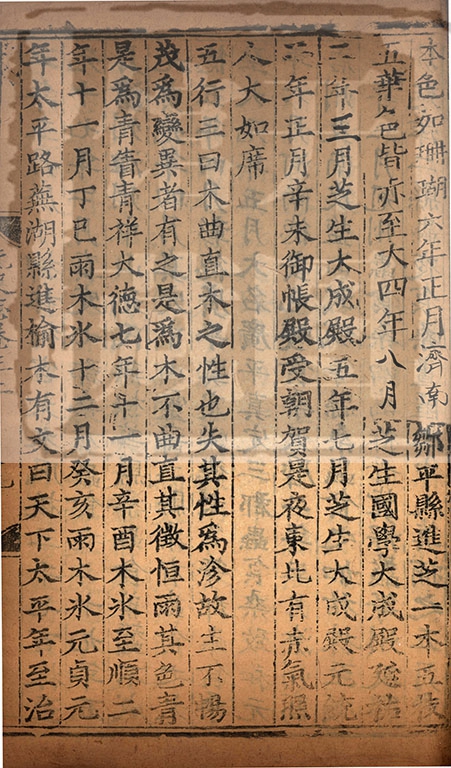 本色如珊瑚六年正月濟南鄒平縣進芝一本五枝
五華色皆赤至大四年八月芝生國學大成殿延祐
二年三月芝生大成殿五年七月芝生大成殿元統
年正月辛未御帳殿受朝賀是夜東北有赤氣照
人大如席
五行三曰木曲直木之性也失其性為沴故生不暢
茂為變異者有之是為木不曲直其徵恒雨其色青
是為青眚青祥大德七年十一月辛酉木冰至順二
年十一月丁巳雨木冰十二月癸亥雨木冰元貞元
年太平路蕪湖縣進榆木有文曰天下太平年至治